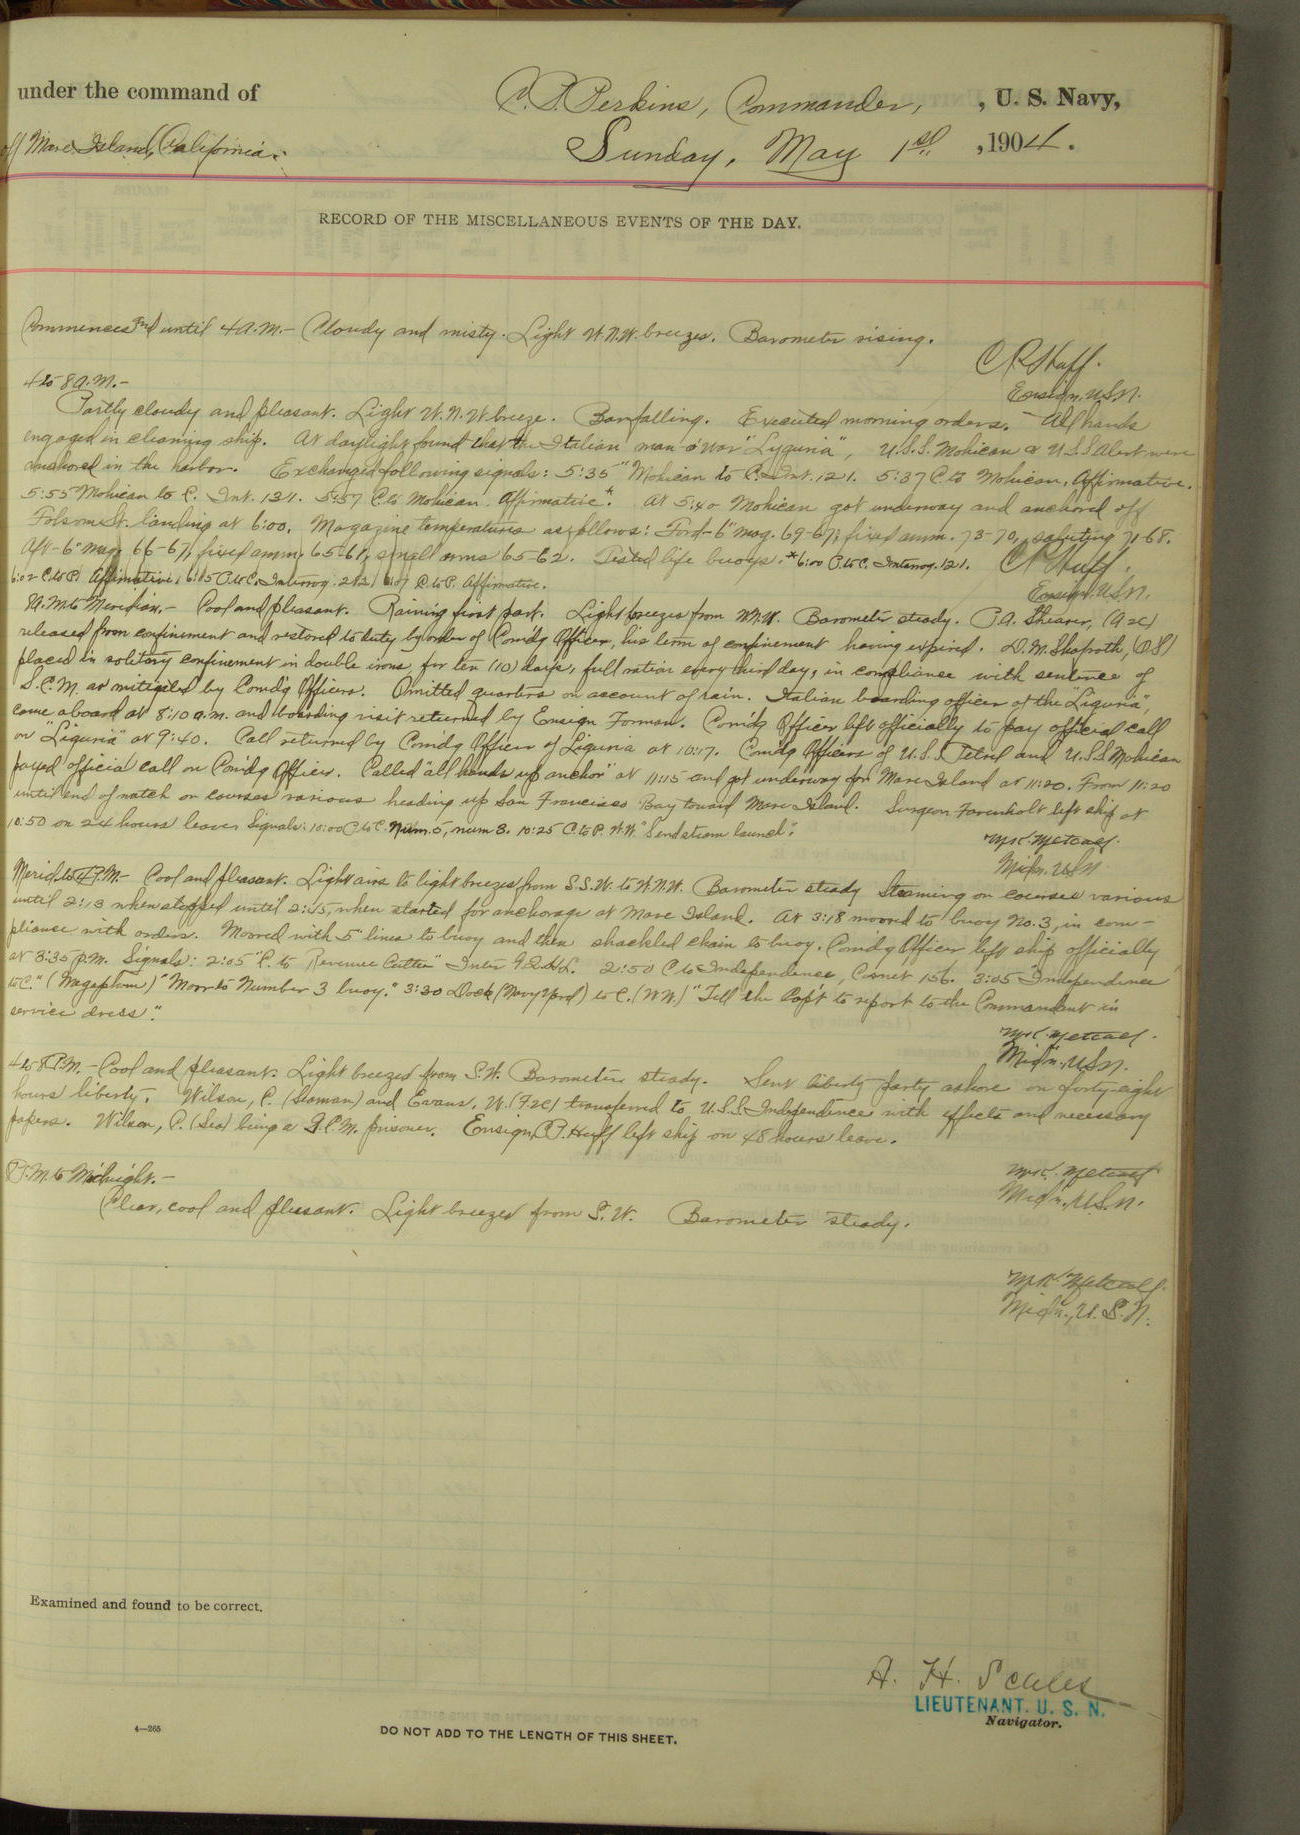 under the command of C. P. Perkins, Commander, , U. S. Navy,
off Mare Island, California. Sunday, May 1st , 1904.
RECORD OF THE MISCELLANEOUS EVENTS OF THE DAY.
Commences and until 4 A.M.- Cloudy and misty. Light W.N.W. breezes. Barometer rising.
C P Huff.
Ensign, U.S.N.
4 to 8 A.M.-
Partly cloudy and pleasant. Light W.N.W breeze. Bar falling. Executed morning orders. All hands
engaged in cleaning ship. At daylight found that the Italian man-o'war "Lyguria", U.S.S. Mohican & U.S.S Alert were
anchored in the harbor. Exchanged following signals: 5:35 "Mohican to C. Int. 121. 5:37 C to Mohican, Affirmative.
5:55 Mohican to C. Int. 131. 5:57 C. to Mohican Affirmative".* At 5:40 Mohican got underway and anchored off
Folsom St. landing at 6:00. Magazine temperatures as follows: Ford-6" mag. 69-67; fixed amm. 73-70, saluting 71-68.
Aft-6" mag. 66-67, fixed amm. 65-61, small arms 65-62. Tested life buoys. *6:00 P. to C. Interrog. 121.
C P Huff.
6:02 C. to P. Affirmative. 6:05 P. to C. Interrog. 6:07 C to P. Affirmative.
Ensign U.S.N.
8 A.M. to Meridian.- Cool and pleasant. Raining first part. Light breezes from W.N.W. Barometer steady. P.A. Shearer, (A2c)
released from confinement and restored to duty by order of Com'dg Officer, his term of confinement having expired. D.M. Shafroth, (OS)
placed in solitary confinement in double irons, for ten (10) days, full ration every third day, in compliance with sentence of
S.C.M. as mitigated by Com'dg Officers. Omitted quarters on account of rain. Italian boarding officer of the "Liguria",
came aboard at 8:10 a.m. and boarding visit returned by Ensign Forman. Com'dg Officer left officially to pay official call
on "Liguria" at 9:40. Call returned by Com'dg Officer of Liguria at 10:17. Com'dg Officers of U.S.S. Petrel and U.S.S Mohican
payed official call on Com'dg Officer. Called "all hands up anchor" at 11:15 and got underway for Mare Island at 11:20. From 11:20
until end of watch on courses various heading up San Francisco Bay toward Mare Island. Surgeon Farenholt left ship at
10:50 on 24 hours leave. Signals: 10:00 P. to C. Num. 5, num 3. 10:25 C. to P. W.W. "Send steam launch".
M.K. Metcalf.
Midn. U.S.N.
Merid. to 4 P.M.- Cool and pleasant. Light airs to light breezes from S.S.W. to W.N.W. Barometer steady Steaming on courses various
until 2:13 when stopped until 2:25, when started for anchorage at Mare Island. At 3:18 moored to buoy No. 3, in com-
pliance with orders. Moored with 5" lines to buoy and then shackled chain to buoy. Com'dg Officer left ship officially
at 3:35 p.m. Signals: 2:05 "C. to Revenue Cutter" Inter 2:50 C to Independence, Cornet 156. 3:05 "Independence
to C." (Megaphone) "Moor to Number 3 buoy." 3:30 Dock (Navy Yard) to C. (W.W.) "Tell the Capt to report to the Commandant in
service dress".
M.K. Metcalf.
Midn., U.S.N.
4 to 8 P.M.- Cool and pleasant. Light breezes from S.W. Barometer steady. Sent liberty party ashore on forty-eight
hours liberty. Wilson, P. (Seaman) and Evans, W. (F.2c) transferred to U.S.S Independence with effects and necessary
papers. Wilson, P. (Sea) being a G.C.M. prisoner. Ensign C.P. Huff left ship on 48 hours leave.
M.K. Metcalf
Midn., U.S.N.
8 P.M. to Midnight.-
Clear, cool and pleasant. Light breezes from S.W. Barometer steady.
M.K. Metcalf.
Midn., U.S.N.
Examined and found to be correct.
A. H. Scales
LIEUTENANT. U. S. N.
Navigator.
4—265
DO NOT ADD TO THE LENGTH OF THIS SHEET.